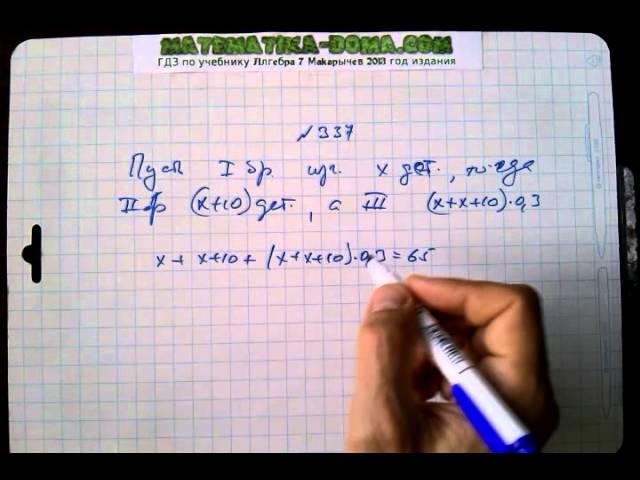 MATEMATIKA-DOMA.COM
ГДЗ по учебнику Алгебра 7 Макарычев 2013 год издания
№337
Пусть I бр. изг. x дет., тогда
II бр (x+10) дет., а III (x+x+10)·0,3
x + x+10 + (x+x+10)·0,3 = 65